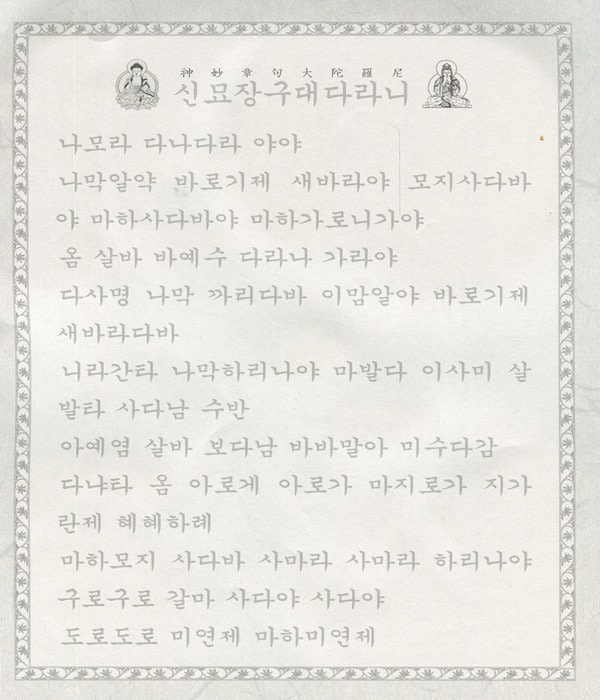 神妙章句大陀羅尼
신묘장구대다라니
나모라 다나다라 야야
나막알약 바로기제 새바라야 모지사다바
야 마하사다바야 마하가로니가야
옴 살바 바예수 다라나 가라야
다사명 나막 까리다바 이맘알야 바로기제
새바라다바
니라간타 나막하리나야 마발다 이사미 살
발타 사다남 수반
아예염 살바 보다남 바바말아 미수다감
다냐타 옴 아로게 아로가 마지로가 지가
란제 혜혜하례
마하모지 사다바 사마라 사마라 하리나야
구로구로 갈마 사다야 사다야
도로도로 미연제 마하미연제